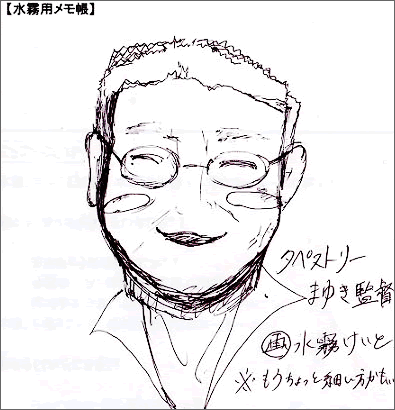 【水霧用メモ帳】
タペストリー
まゆき監督
画 水霧けいと
※もうちょっと細い方がいい